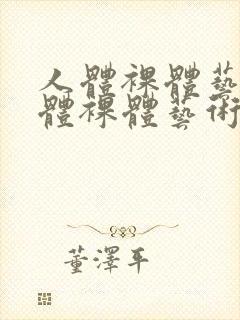 人體裸體藝
體裸體藝術
董澤平